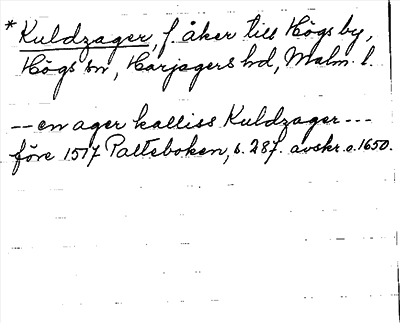 *Kuldzager, f. åker till Högs by,
Högs sn, Harjagers hd, Malm. l.
-- en ager kalliss Kuldzager ---
före 1517 Palteboken, s. 287. avskr. o. 1650.